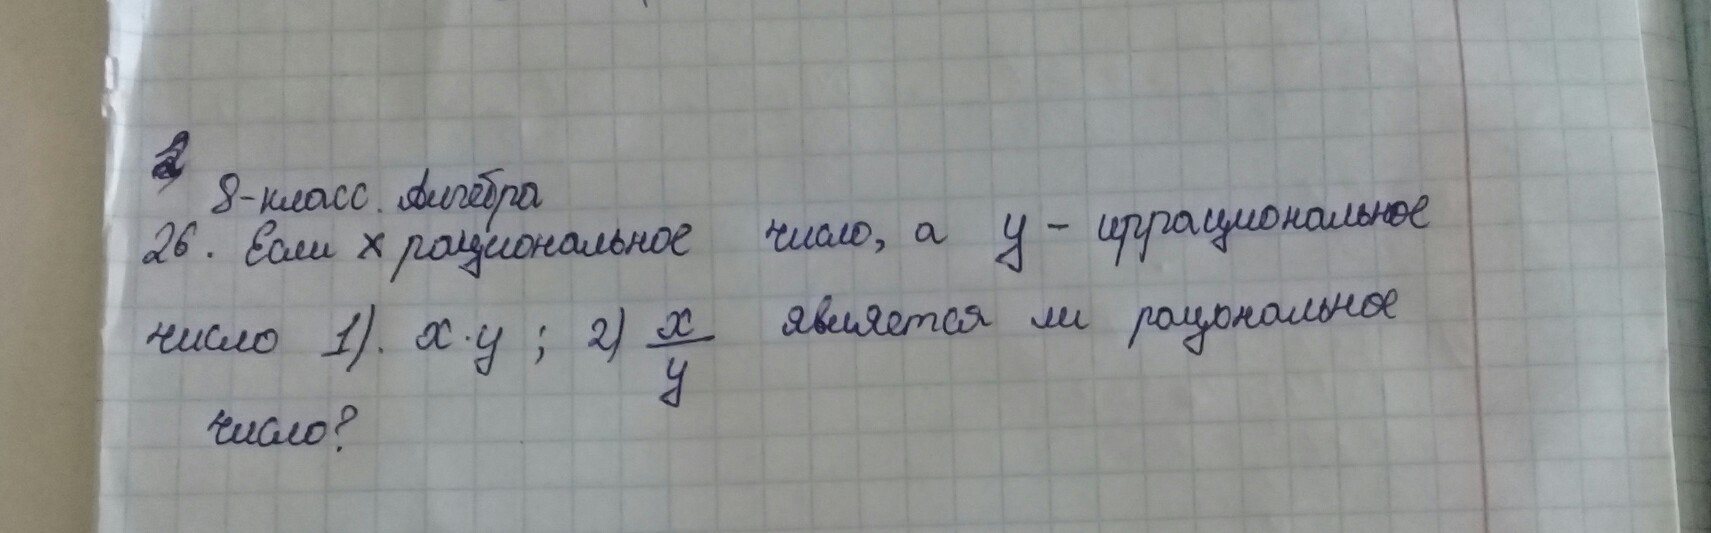 8-класс. Алгебра
26. Если x рациональное число, а y - иррациональное
число 1). x·y ; 2) x/y является ли рациональное
число?